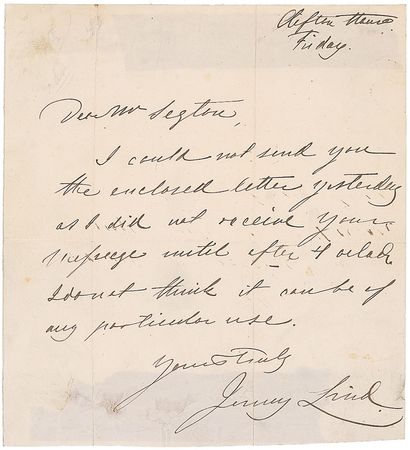 Clifton House
Friday.
Dear Mr Segton,
I could not send you
the enclosed letter yesterday
as I did not receive your
until after 4 oclock.
I do not think it can be of
any particular use.
Yours truly
Jenny Lind.